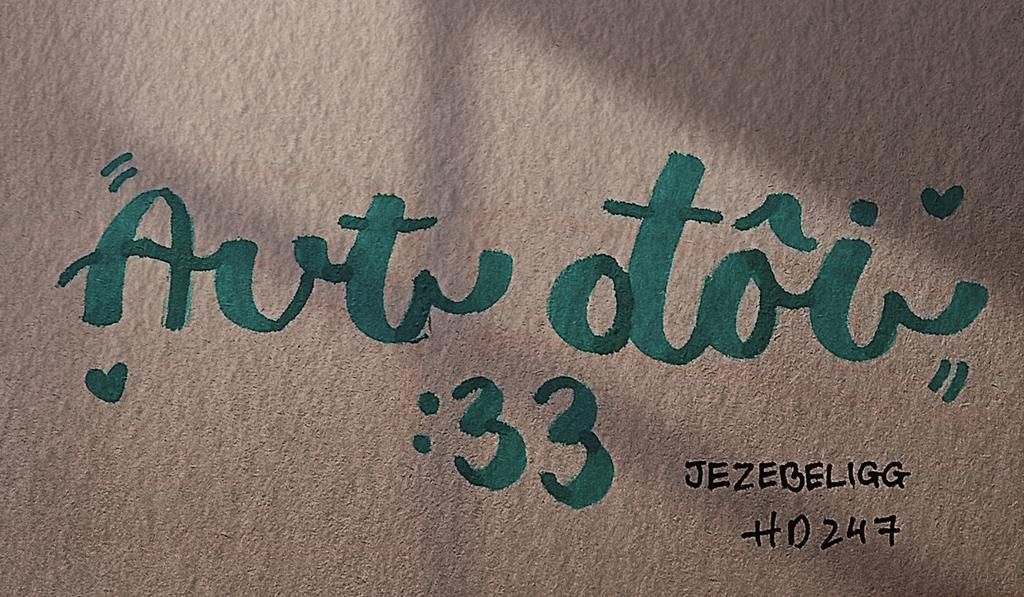 Avt đôi
:33
JEZEBELIGG
HD247